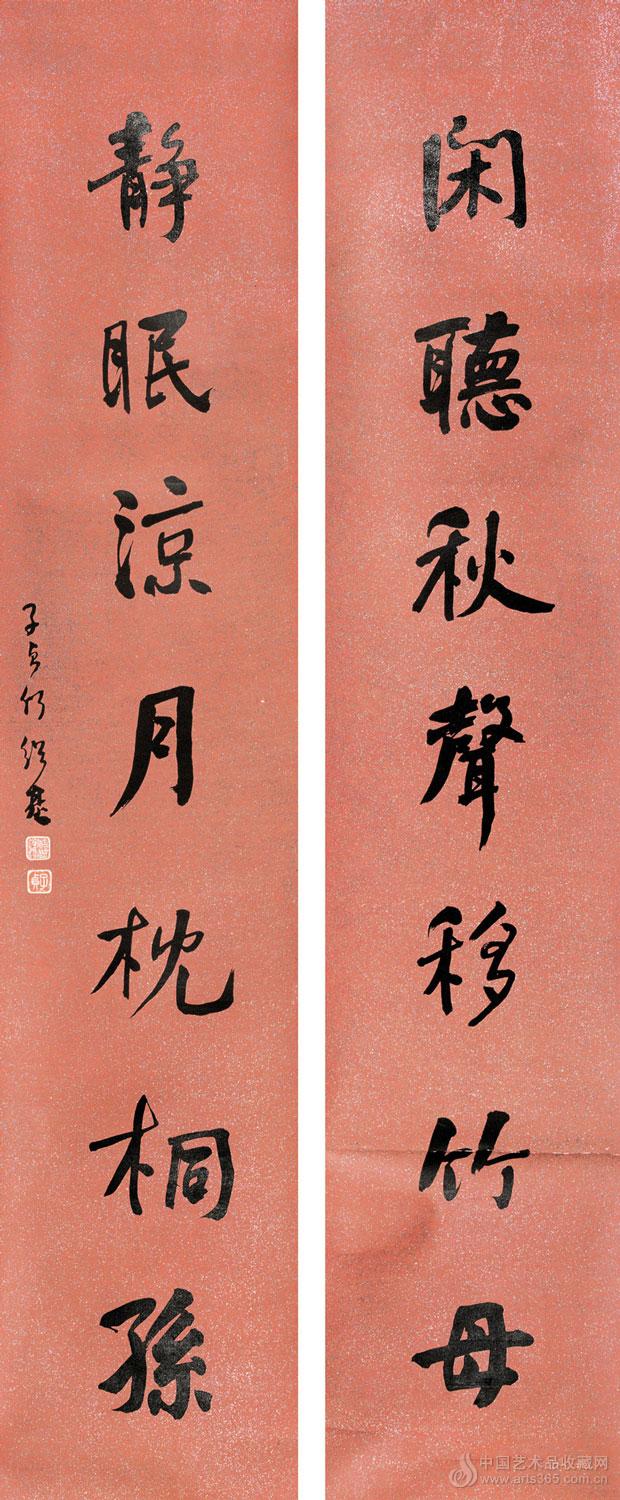 閑聽秋聲移竹母
静眠涼月枕桐孫
子貞何紹基
子貞
中国艺术品收藏网
www.arts365.com.cn